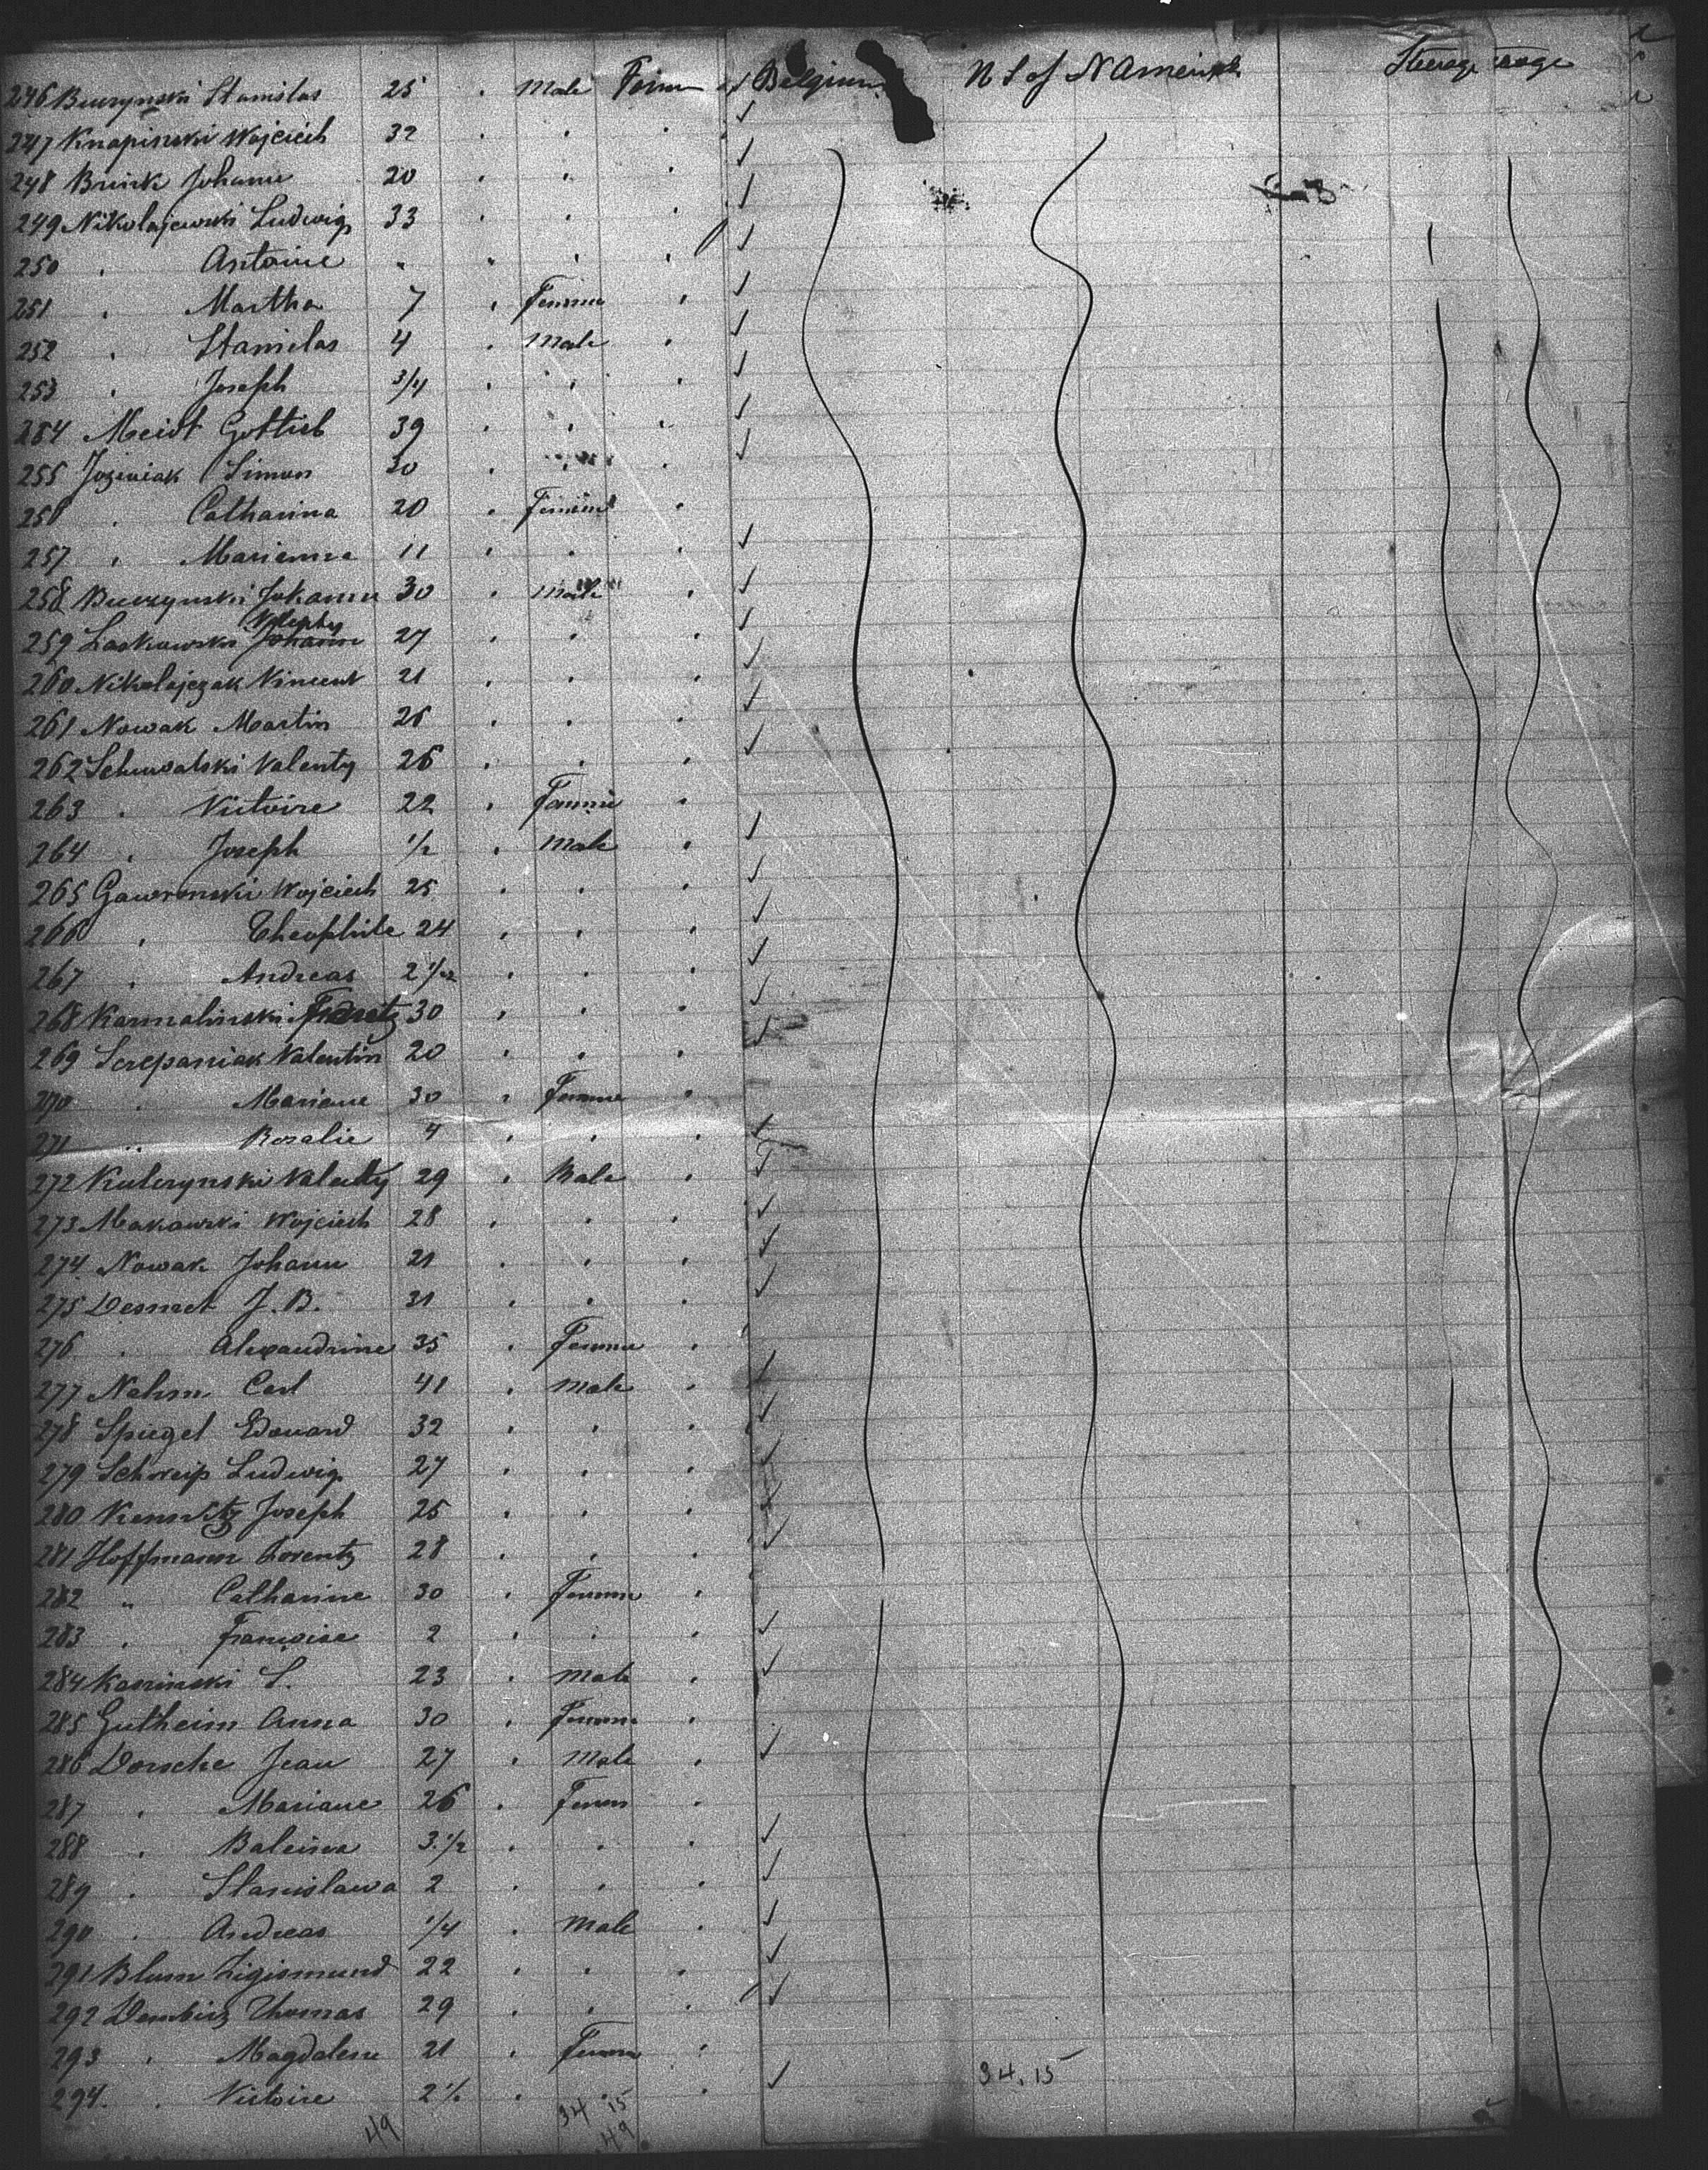 246 Buczynski Stanislas 25 . Male Farm Belgium U S of N America Steerage
247 Knapinski Wojciech 32 . . .
248 Brink Johann 20 . . .
249 Nikolajewski Ludwig 33 . . .
250 . Antoine " " . .
251 . Martha 7 . Femme .
252 . Stanislas 4 . Male .
253 . Joseph 3/4 . . .
254 Meidt Gottlieb 39 . . .
255 Joziniak Simon 30 . . .
256 . Catharina 20 . Femme .
257 . Marianna 11 . . .
258 Buczynski Johann 30 . Male .
259 Laskowski Johann 27 . . .
260 Nikolajczak Vincent 21 . . .
261 Nowak Martin 26 . . .
262 Schuwalski Valenty 26 . . .
263 . Victoire 22 . Femme .
264 . Joseph 1/2 . Male .
265 Gawronski Wojciech 25 . . .
266 . Theophile 24 . . .
267 . Andreas 2 1/2 . . .
268 Karmalinski 30 . . .
269 Screpaniak Valentin 20 . . .
270 . Mariane 30 . Femme .
271 .. Rosalie 4 . . .
272 Kulczynski Valenty 29 . Male .
273 Makawski Wojciech 28 . . .
274 Nowak Johann 21 . . .
275 Desmet J. B. 31 . . .
276 . Alexandrine 35 . Femme .
277 Nahm Carl 41 . Male .
278 Spiegel Edouard 32 . . .
279 Schreip Ludwig 27 . . .
280 Joseph 25 . . .
281 Hoffmann Lorentz 28 . . .
282 " Catharine 30 . Femme .
283 . Françoise 2 . . .
284 Kasinski S. 23 . Male
285 Gutheim Anna 30 . Femme .
286 Dorsche Jean 27 . Male .
287 . Mariane 26 . Femm .
288 . Baleina 3 1/2 . . .
289 . Stanislawa 2 . . .
290 . Andreas 1/4 . Male .
291 Blum Zigismund 22 . . .
292 Dembitz Thomas 29 . . .
293 . Magdalene 21 . Femme .
294 . Victoire 2 1/2 . . . 34.15
49 34 15
49